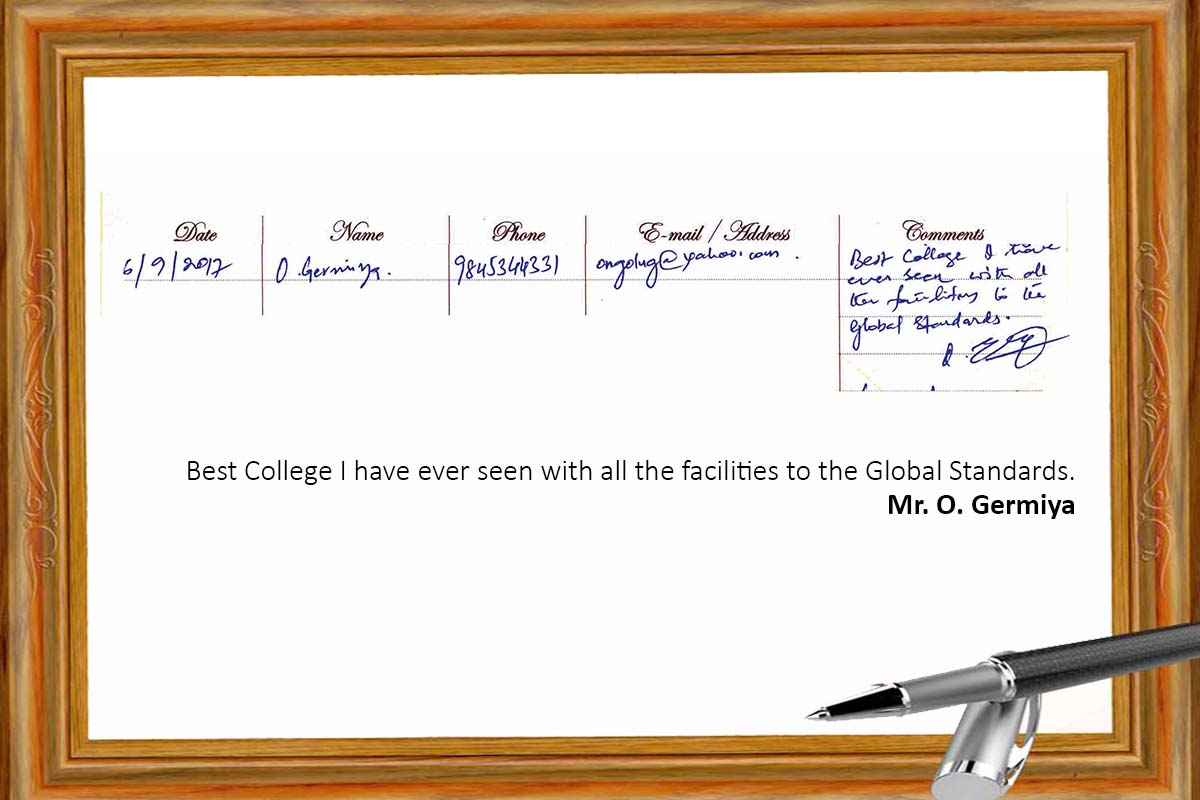 Date Name Phone E-mail / Address Comments
6/9/2017 O. Germiya. 9845344331 @yahoo.com.
Best College I have
ever seen with all
the facilities to the
Global Standards.
Best College I have ever seen with all the facilities to the Global Standards.
Mr. O. Germiya